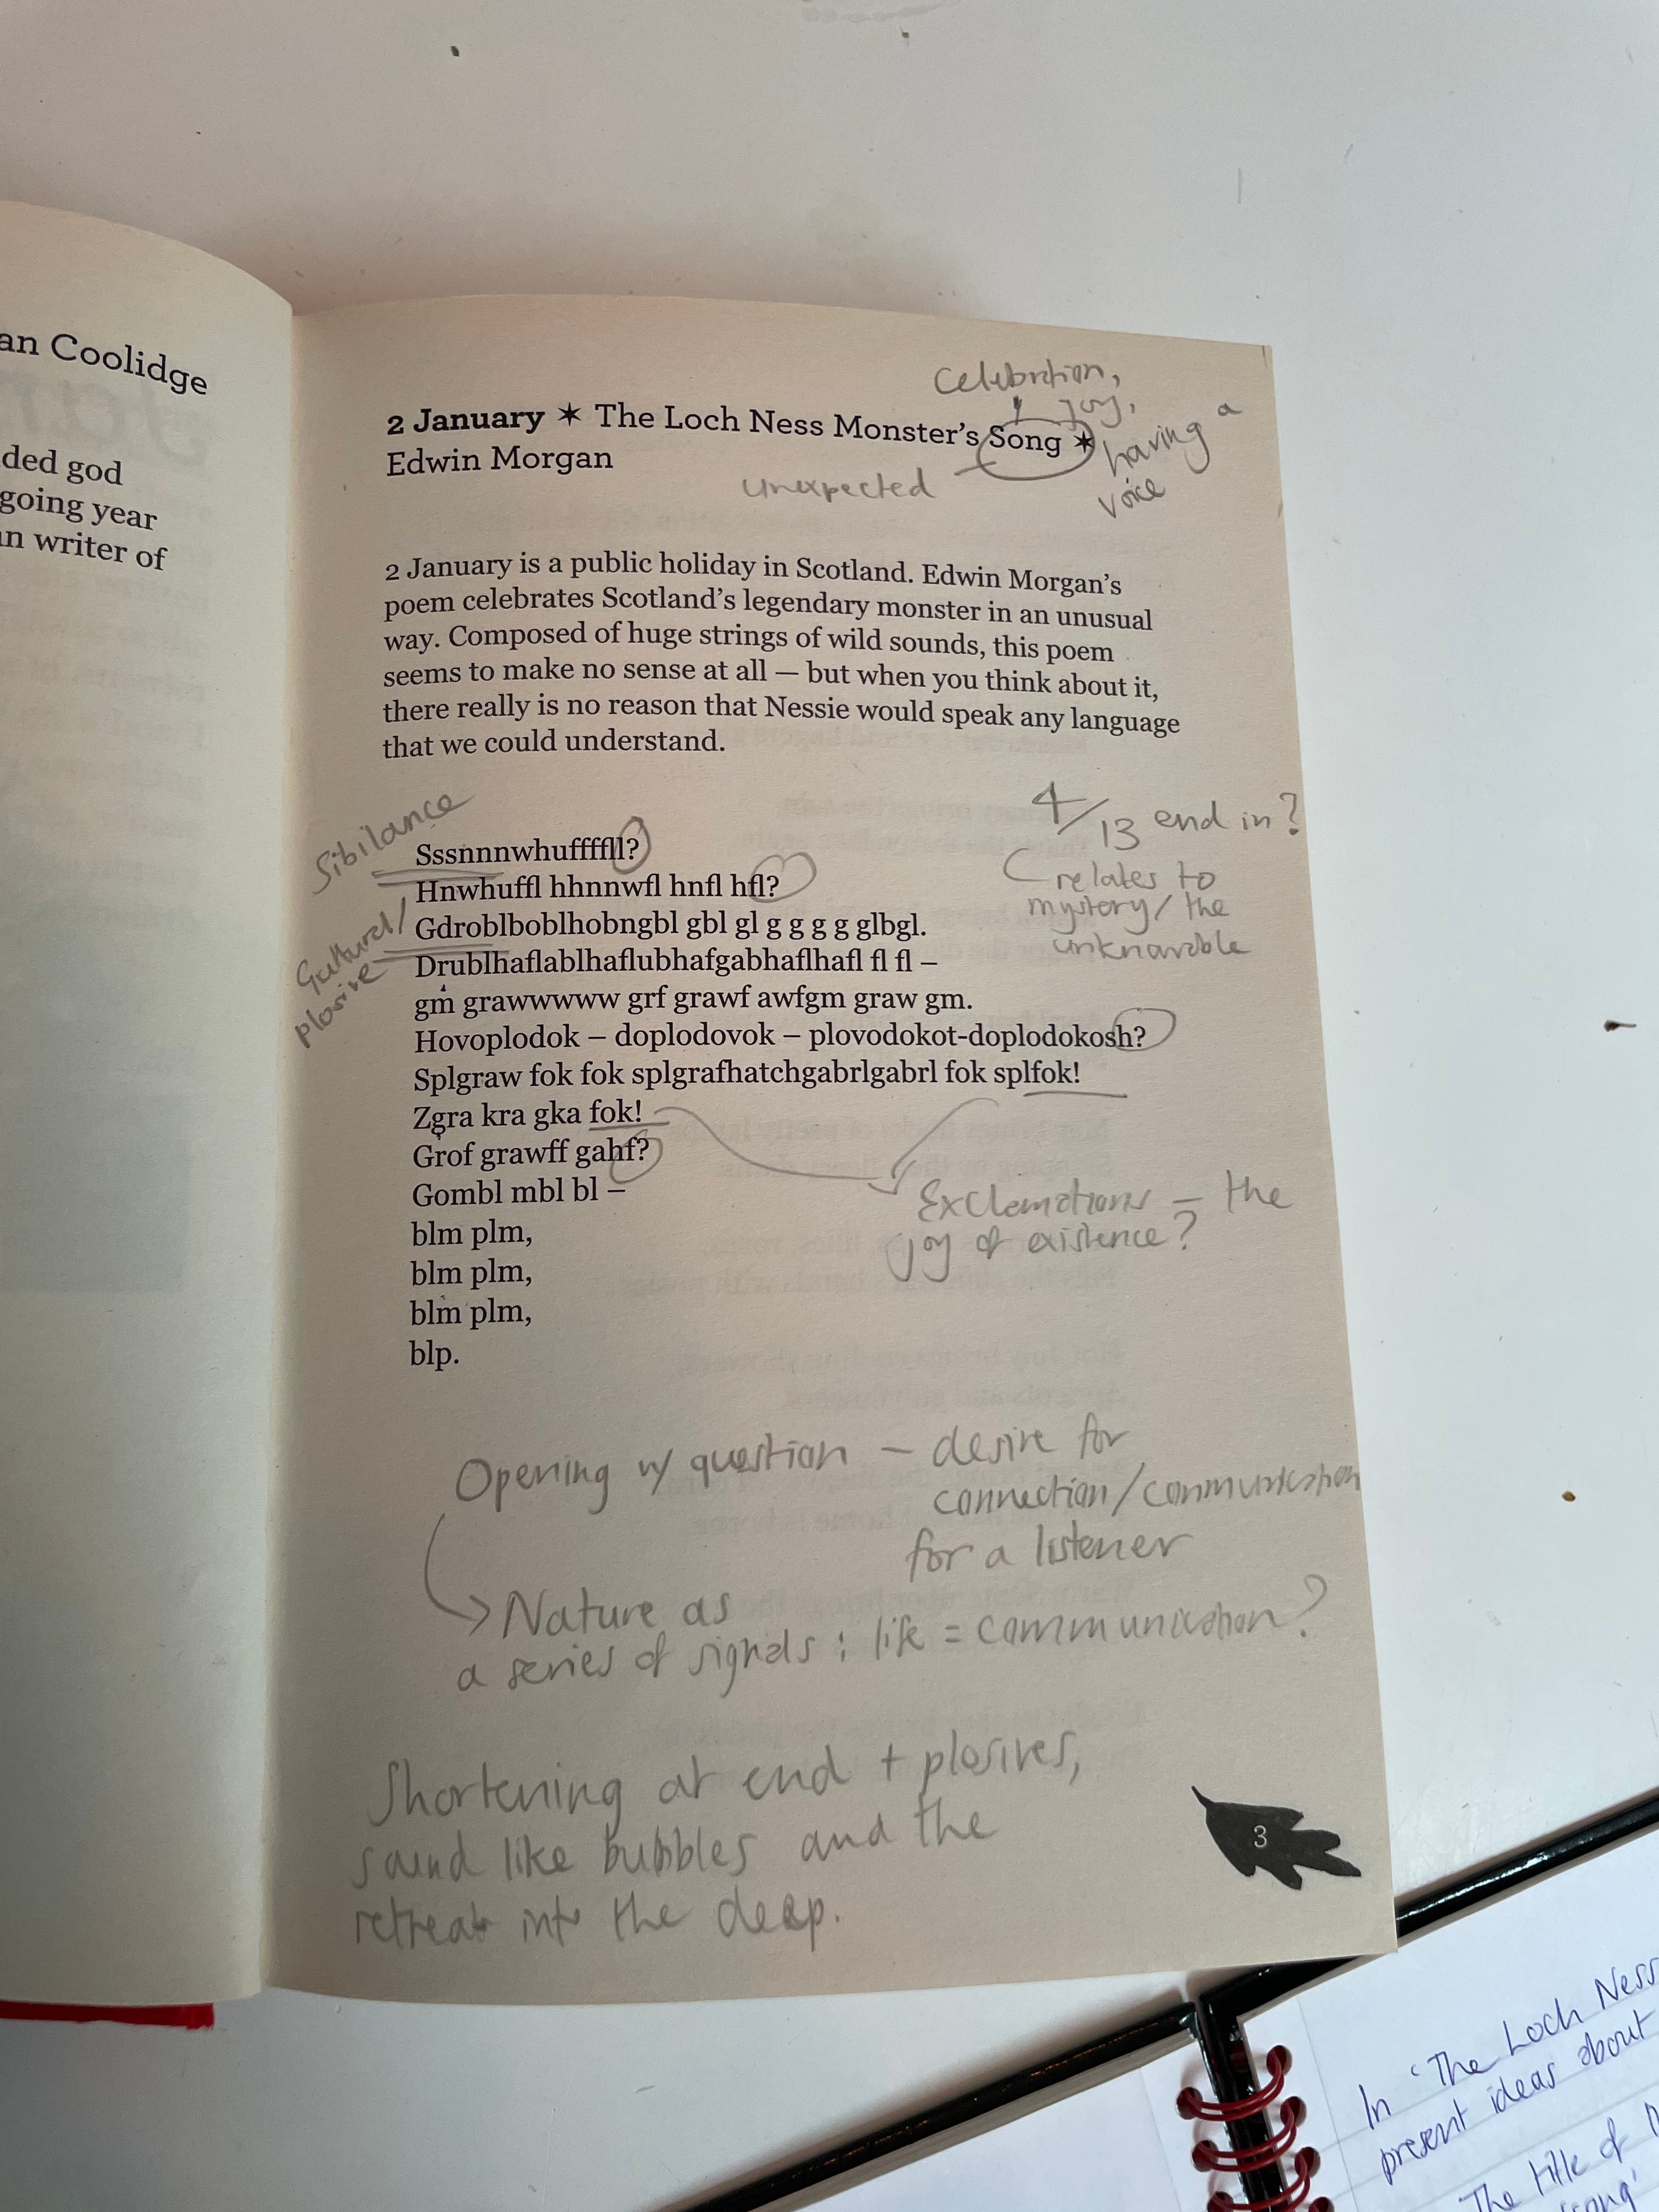 an Coolidge
ded god
going year
n writer of
Celebration,
joy,
having a
voice
2 January ✶ The Loch Ness Monster's Song ✶
Edwin Morgan
unexpected
2 January is a public holiday in Scotland. Edwin Morgan's
poem celebrates Scotland's legendary monster in an unusual
way. Composed of huge strings of wild sounds, this poem
seems to make no sense at all — but when you think about it,
there really is no reason that Nessie would speak any language
that we could understand.
Sibilance
4/13 end in ?
relates to
mystery / the
unknowable
Guttural /
plosive
Sssnnnwhuffffll?
Hnwhuffl hhnnwfl hnfl hfl?
Gdroblboblhobngbl gbl gl g g g g glbgl.
Drublhaflablhaflubhafgabhaflhafl fl fl –
gm grawwwww grf grawf awfgm graw gm.
Hovoplodok – doplodovok – plovodokot-doplodokosh?
Splgraw fok fok splgrafhatchgabrlgabrl fok splfok!
Zgra kra gka fok!
Grof grawff gahf?
Gombl mbl bl –
blm plm,
blm plm,
blm plm,
blp.
Exclamations – the
joy of existence?
Opening w/ question – desire for
connection/communication
for a listener
Nature as
a series of signals : life = communication?
Shortening at end + plosives,
sound like bubbles and the
retreat into the deep.
3
In 'The Loch Ness
present ideas about
The title of
song'